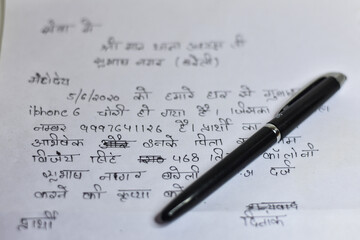 सेवा में
श्री मान थाना अध्यक्ष जी
सुभाष नगर (बरेली)
महोदय
5/6/2020 को हमारे हाथ से
iphone 6 चोरी हो गया है। जिसका
नम्बर 9997641126 है। प्रार्थी का
अभिषेक उनके पिता
सिंह 468 कॉलोनी
सुभाष नगर बरेली दर्ज
करने की कृपा करें
प्रार्थी दिनांक